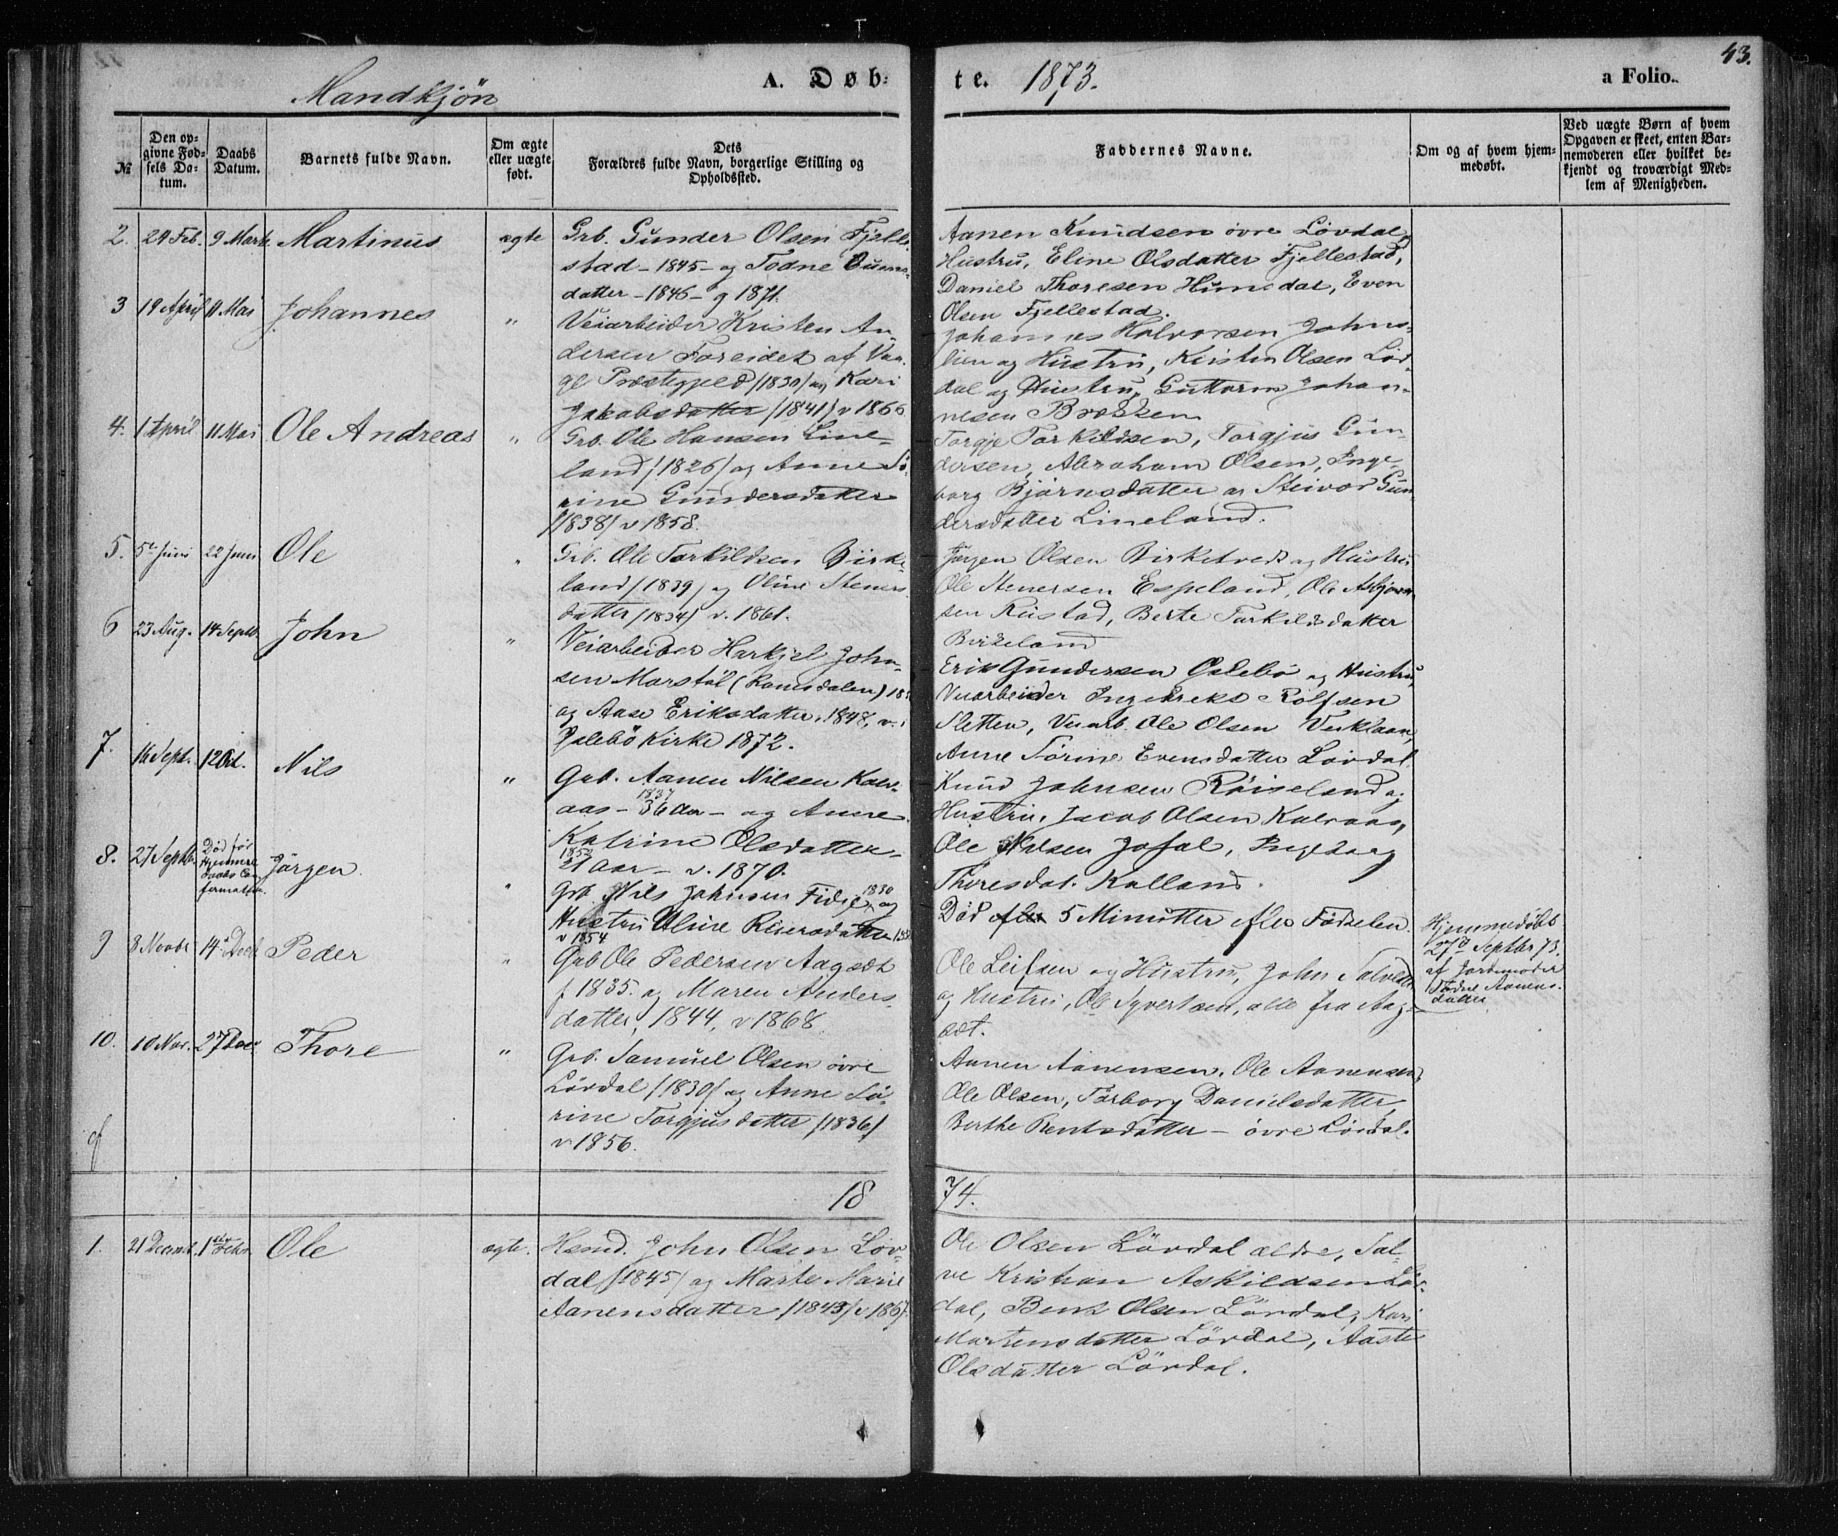 43.
Mandkjøn
A. Døb-
te. 1873.
a Folio.
№
Den opgivne Fødsels Datum.
Daabs Datum.
Barnets fulde Navn.
Om ægte eller uægte født.
Dets Forældres fulde Navn, borgerlige Stilling og Opholdssted.
Faddernes Navne.
Om og af hvem hjemmedøbt.
Ved uægte Børn af hvem Opgaven er skeet, enten Barnemoderen eller hvilket bekjendt og troværdigt Medlem af Menigheden.
2. 24 Feb. 9 Marts Martinus ægte
Grb. Gunder Olsen Fjelle-
stad - 1845 - og Todne
datter - 1846 - g 1871.
Aanen Knudsen övre Lövdal og
Hustru, Eline Olsdatter Fjellestad,
Daniel Thoresen Hunsdal, Even
Olsen Fjellestad.
3 19 April 11 Mai Johannes "
Veiarbeider Kristen An-
dersen Foreidet af
Præstegjeld /1830/ og Kari
Jakobsdatter /1841/ v 1866
Johannes Halvorsen Johns-
lien og Hustru, Kristen Olsen Löv
dal og Hustru, Guttorm Johan-
nesen Brækken
4. 1 April 11 Mai Ole Andreas "
Grb. Ole Hansen Line-
land /1826/ og Anne Sö-
rine Gundersdatter
/1838/ v 1858.
Torgje Torkildsen, Torgjus Gun-
dersen, Abraham Olsen, Inge-
borg Bjørnsdatter og Steivor Gun
dersdatter Lineland.
5. 5te Juni 22 Juni Ole "
Grb. Ole Torkildsen Birke-
land /1839/ og Oline Steners-
datter /1834/ v. 1861.
Jørgen Olsen Birketvedt og Hustru
Ole Stenersen Espeland, Ole Asbjørn
sen Rustad, Berte Torkildsdatter
Birkeland
6 23 Aug. 14 Septb. John "
Veiarbeider Harkjel John-
sen Marstöl (Romsdalen)
og Aase Eriksdatter, 1848, v. i
Øslebö Kirke 1872.
Erik Gundersen Øslebö og Hustru,
Veiarbeider Ingebrekt Rolfsen
Sletten, Veiarb. Ole Olsen
Anne Sörine Evensdatter Lövdal
7. 16 Sept. 12 Oct. Nils "
Grb. Aanen Nilsen Kalv-
1837
aas - 36 Aar - og Anne
Katrine Olsdatter -
1852
21 Aar - v. 1870.
Knud Johnsen Röiseland og
Hustru, Jacob Olsen Kalvaas,
Ole Nilsen Jofal, Ingeborg
Thoresdat. Kalland.
8. 27 Septb. Død før Hjemmedaabs Confirmation Jörgen. "
Grb. Nils Johnsen Fidje 1830 og
Hustru Oline Reiersdatter
v 1854
Død 5 Minutter efter Fødselen.
Hjemmedøbt
27de Septbr 73.
af Jordemoder
Todne Aanens-
datter
9 8 Novbr 14de Decb. Peder "
Grb Ole Pedersen Aagedt
f 1835. og Maren Anders-
datter, 1844, v 1868.
Ole Leifsen og Hustru, John
og Hustru, Ole Syvertsen, alle fra Aag-
edt.
10. 10 Nov. 27 Dec. Thore "
Grb. Samuel Olsen övre
Lövdal /1830/ og Anne Sö-
rine Torgjusdatter /1836/
v 1856.
Aanen Aanensen, Ole Aanensen,
Ole Olsen, Torborg Danielsdatter,
Berthe Bentsdatter - övre Lövdal.
18
74.
1. 21 Decemb. 1ste Febr. Ole ægte.
Hsmd. John Olsen Löv-
dal /1845/ og Marte Marie
Aanensdatter /1843/ v 1867.
Ole Olsen Lövdal ældre, Sal-
ve Kristian Askildsen Löv-
dal, Bent Olsen Lövdal, Kari
Martensdatter Lövdal, Aaste
Olsdatter Lövdal.